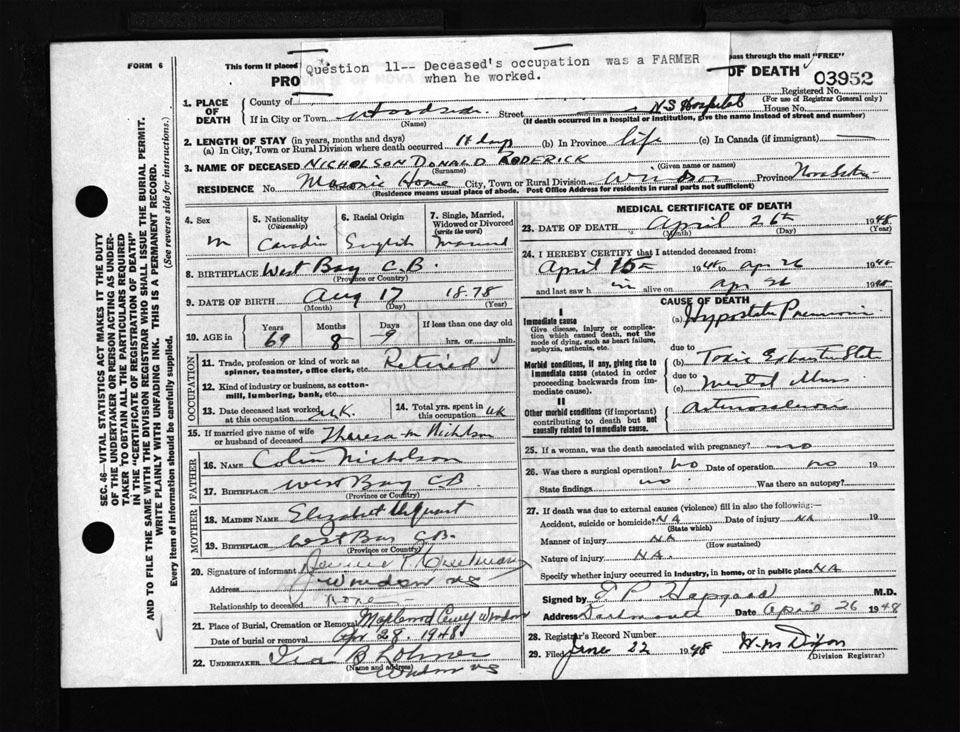 FORM 6
This form if placed
pass through the mail "FREE"
Question 11-- Deceased's occupation was a FARMER
when he worked.
PRO
OF DEATH
03952
Registered No.
(For use of Registrar General only)
1. PLACE OF DEATH
County of
If in City or Town Street N-S Hospital House No.
(Name) (If death occurred in a hospital or institution, give the name instead of street and number)
2. LENGTH OF STAY (in years, months and days)
(a) In City, Town or Rural Division where death occurred 11 days (b) In Province life (c) In Canada (if immigrant) —
3. NAME OF DECEASED NICHOLSON DONALD RODERICK
(Surname) (Given name or names)
RESIDENCE No. Masonic Home City, Town or Rural Division Windsor Province Nova Scotia
(Residence means usual place of abode. Post Office Address for residents in rural parts not sufficient)
4. Sex
M
5. Nationality
(Citizenship)
Canadian
6. Racial Origin
English
7. Single, Married,
Widowed or Divorced
(write the word)
Married
8. BIRTHPLACE West Bay C.B.
(Province or Country)
9. DATE OF BIRTH Aug 17 1878
(Month) (Day) (Year)
10. AGE in Years Months Days If less than one day
69 8 9 hrs. or min.
OCCUPATION
11. Trade, profession or kind of work as
spinner, teamster, office clerk, etc. Retired
12. Kind of industry or business, as cotton-
mill, lumbering, bank, etc.
13. Date deceased last worked
at this occupation U.K.
14. Total yrs. spent in
this occupation UK
15. If married give name of wife
or husband of deceased Theresa M Nicholson
FATHER
16. NAME Colin Nicholson
17. BIRTHPLACE West Bay C.B.
(Province or Country)
MOTHER
18. MAIDEN NAME Elizabeth
19. BIRTHPLACE West Bay C.B.
(Province or Country)
20. Signature of informant
Address Windsor NS
Relationship to deceased none
21. Place of Burial, Cremation or Removal Maplewood Windsor
Date of burial or removal Apr 28. 1948
22. UNDERTAKER Ira B
(Name and address) Windsor NS
MEDICAL CERTIFICATE OF DEATH
23. DATE OF DEATH April 26th 1948
(Month) (Day) (Year)
24. I HEREBY CERTIFY that I attended deceased from:
April 15th 1948 to Apr 26 1948
and last saw h im alive on Apr 26 1948
CAUSE OF DEATH
I
Immediate cause
Give disease, injury or complica-
tion which caused death, not the
mode of dying, such as heart failure,
asphyxia, asthenia, etc.
(a) Hypostatic Pneumonia
due to
Morbid conditions, if any, giving rise to
immediate cause (stated in order
proceeding backwards from im-
mediate cause).
(b) Toxic Exhaustion State
due to
(c) Mental Illness
II
Other morbid conditions (if important)
contributing to death but not
causally related to immediate cause.
Arteriosclerosis
25. If a woman, was the death associated with pregnancy? no
26. Was there a surgical operation? no Date of operation no 19
State findings no Was there an autopsy?
27. If death was due to external causes (violence) fill in also the following:—
Accident, suicide or homicide? NA Date of injury NA 19
(State which)
Manner of injury NA
(How sustained)
Nature of injury NA.
Specify whether injury occurred in industry, in home, or in public place NA
Signed by Hapgood M.D.
Address Dartmouth Date April 26 1948
28. Registrar's Record Number
29. Filed June 22 1948 W.M Dixon
(Division Registrar)
SEC. 46—VITAL STATISTICS ACT MAKES IT THE DUTY
OF THE UNDERTAKER OR PERSON ACTING AS UNDER-
TAKER TO OBTAIN ALL THE PARTICULARS REQUIRED
IN THE "CERTIFICATE OF REGISTRATION OF DEATH"
AND TO FILE THE SAME WITH THE DIVISION REGISTRAR WHO SHALL ISSUE THE BURIAL PERMIT.
WRITE PLAINLY WITH UNFADING INK. THIS IS A PERMANENT RECORD.
Every item of information should be carefully supplied. (See reverse side for instructions.)